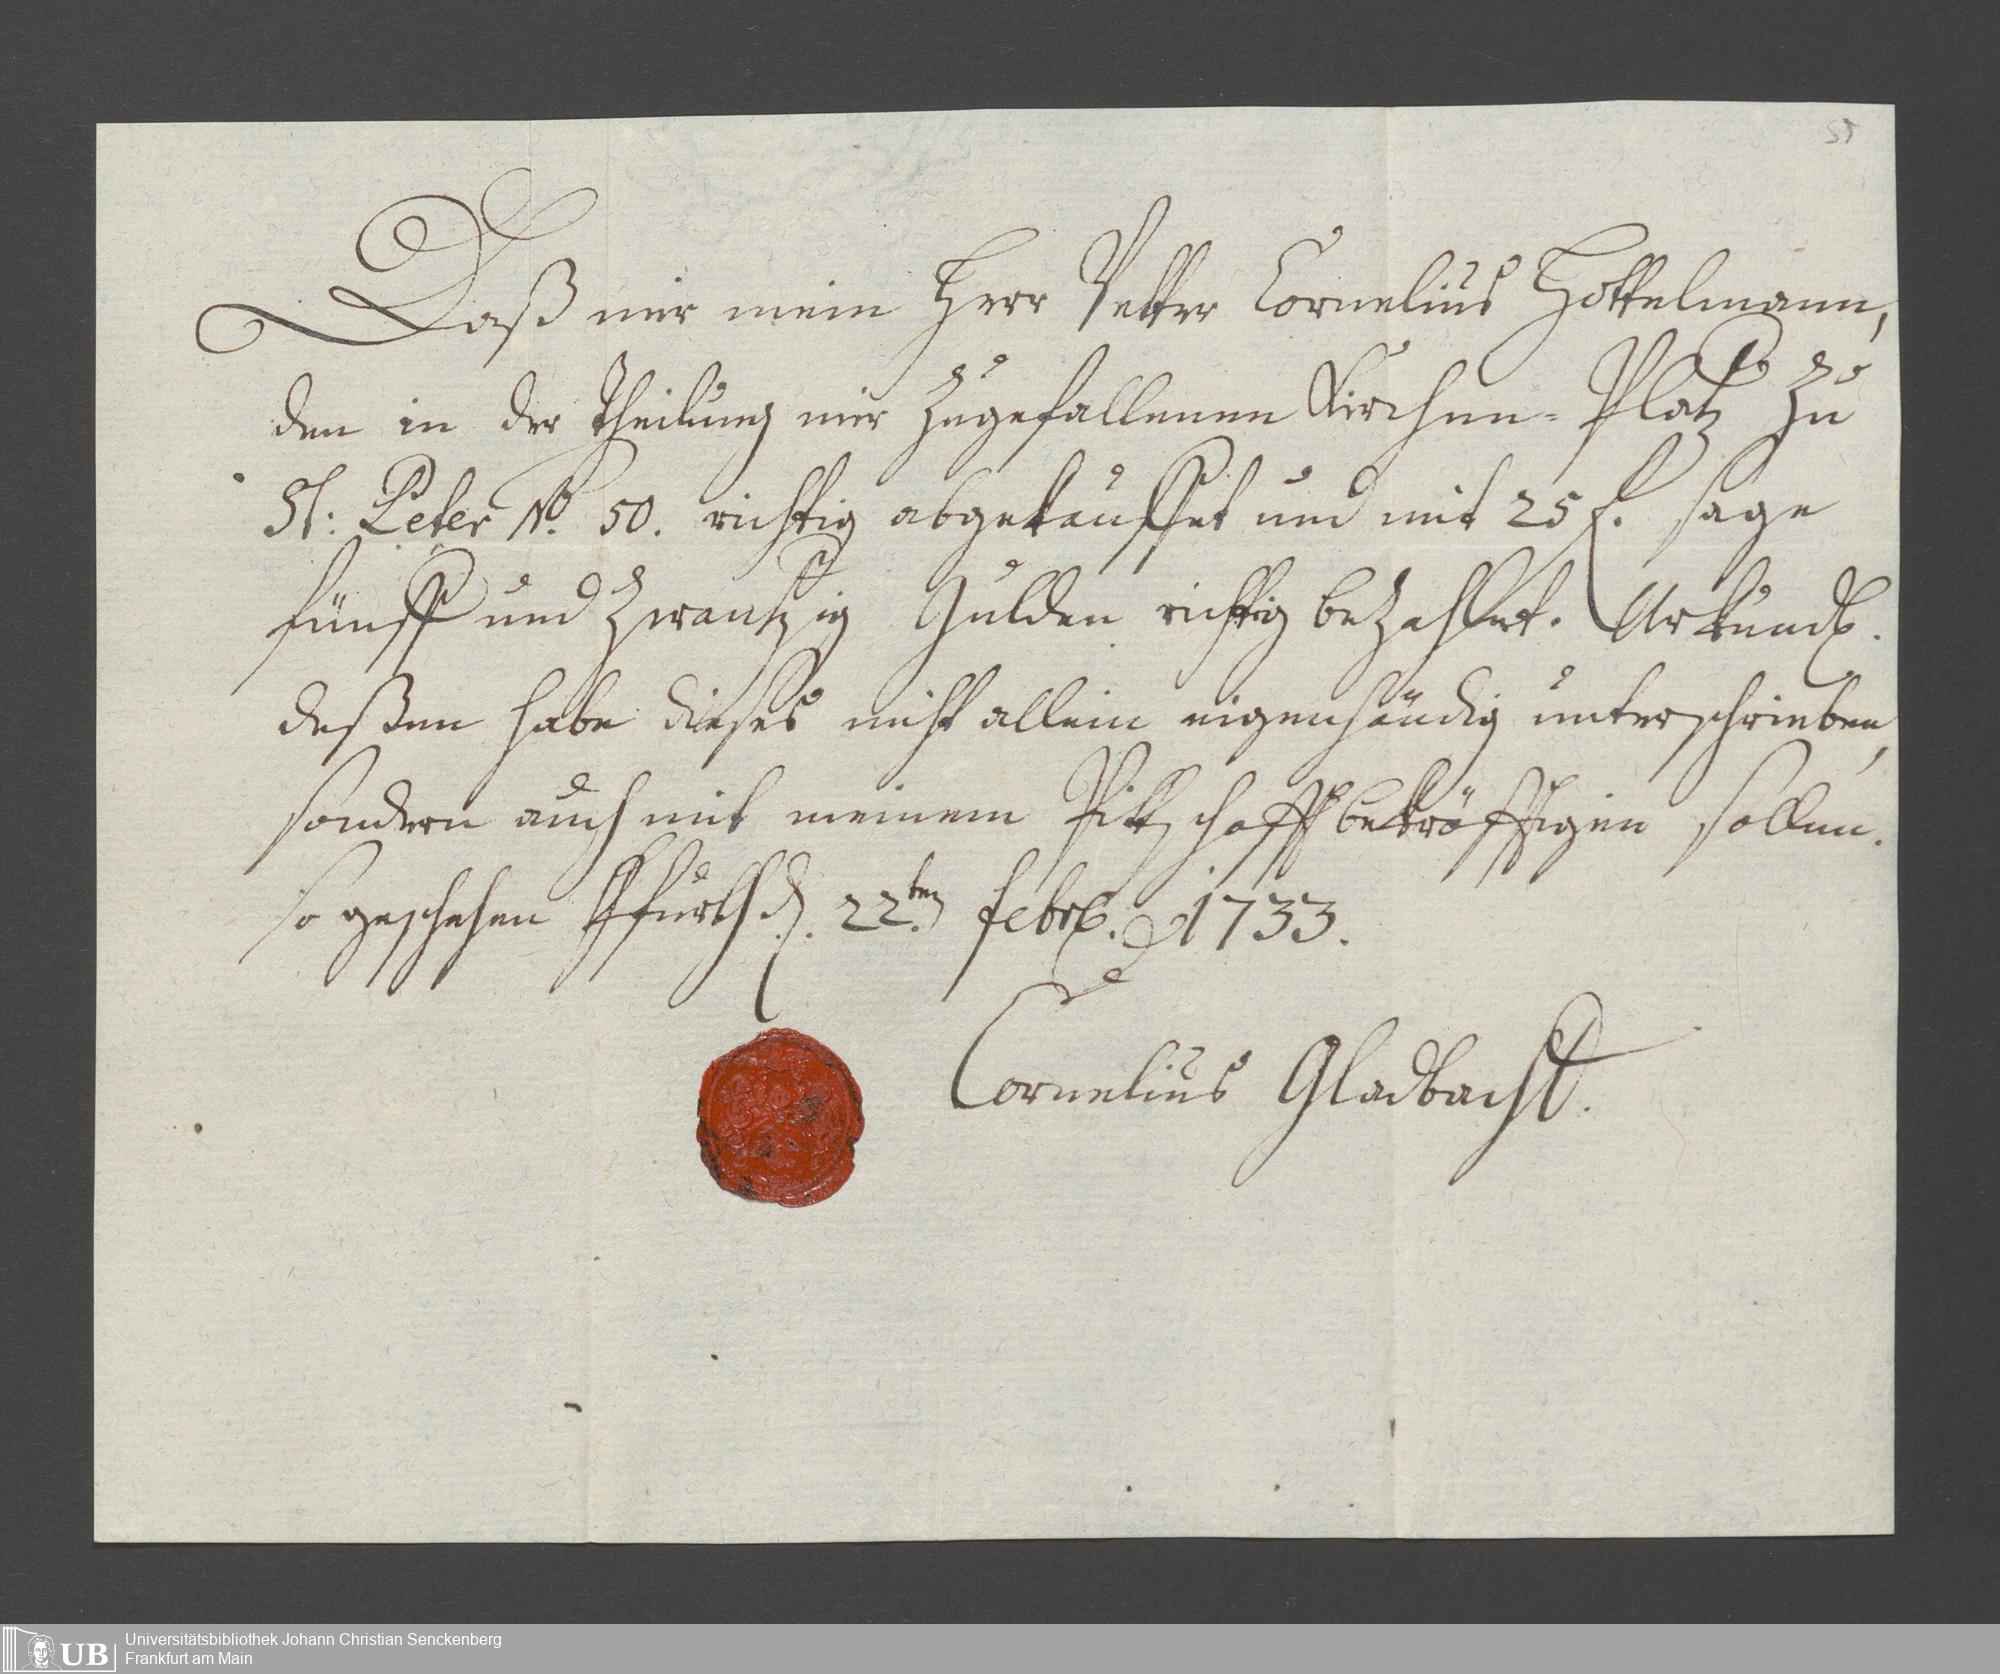 55
Daß mir mein Herr Vetter Cornelius Hottelmann,
den in der Theilung mir zugefallenen Kirchen-Platz zu
St: Peter No. 50. richtig abgekauffet und mit 25 f. sage
fünff und zwantzig Gulden richtig bezahlet. Urkundl.
deßen habe dieses nicht allein eigenhändig unterschrieben,
sondern auch mit meinem Pittschafft bekräfftigen sollen.
so geschehen Ffurth d. 22.ten Febr. 1733.
Cornelius Gladbach
UB
Universitätsbibliothek Johann Christian Senckenberg
Frankfurt am Main